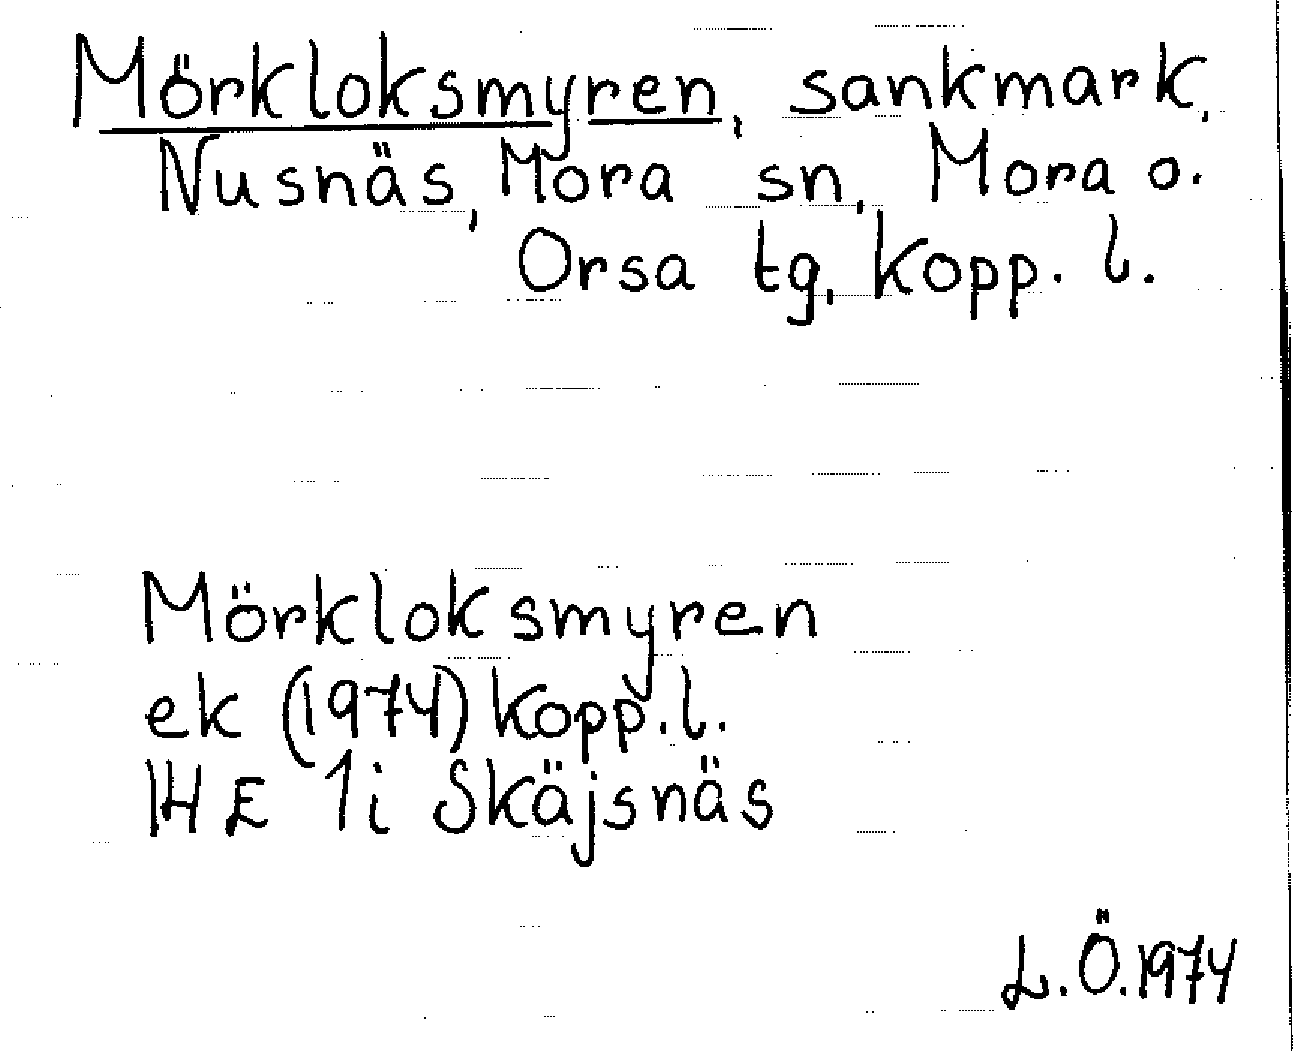 Mörkloksmyren, sankmark,
Nusnäs, Mora sn, Mora o.
Orsa tg, Kopp. l.
Mörkloksmyren
ek (1974) Kopp. l.
14 E 1i Skäjsnäs
L. Ö. 1974